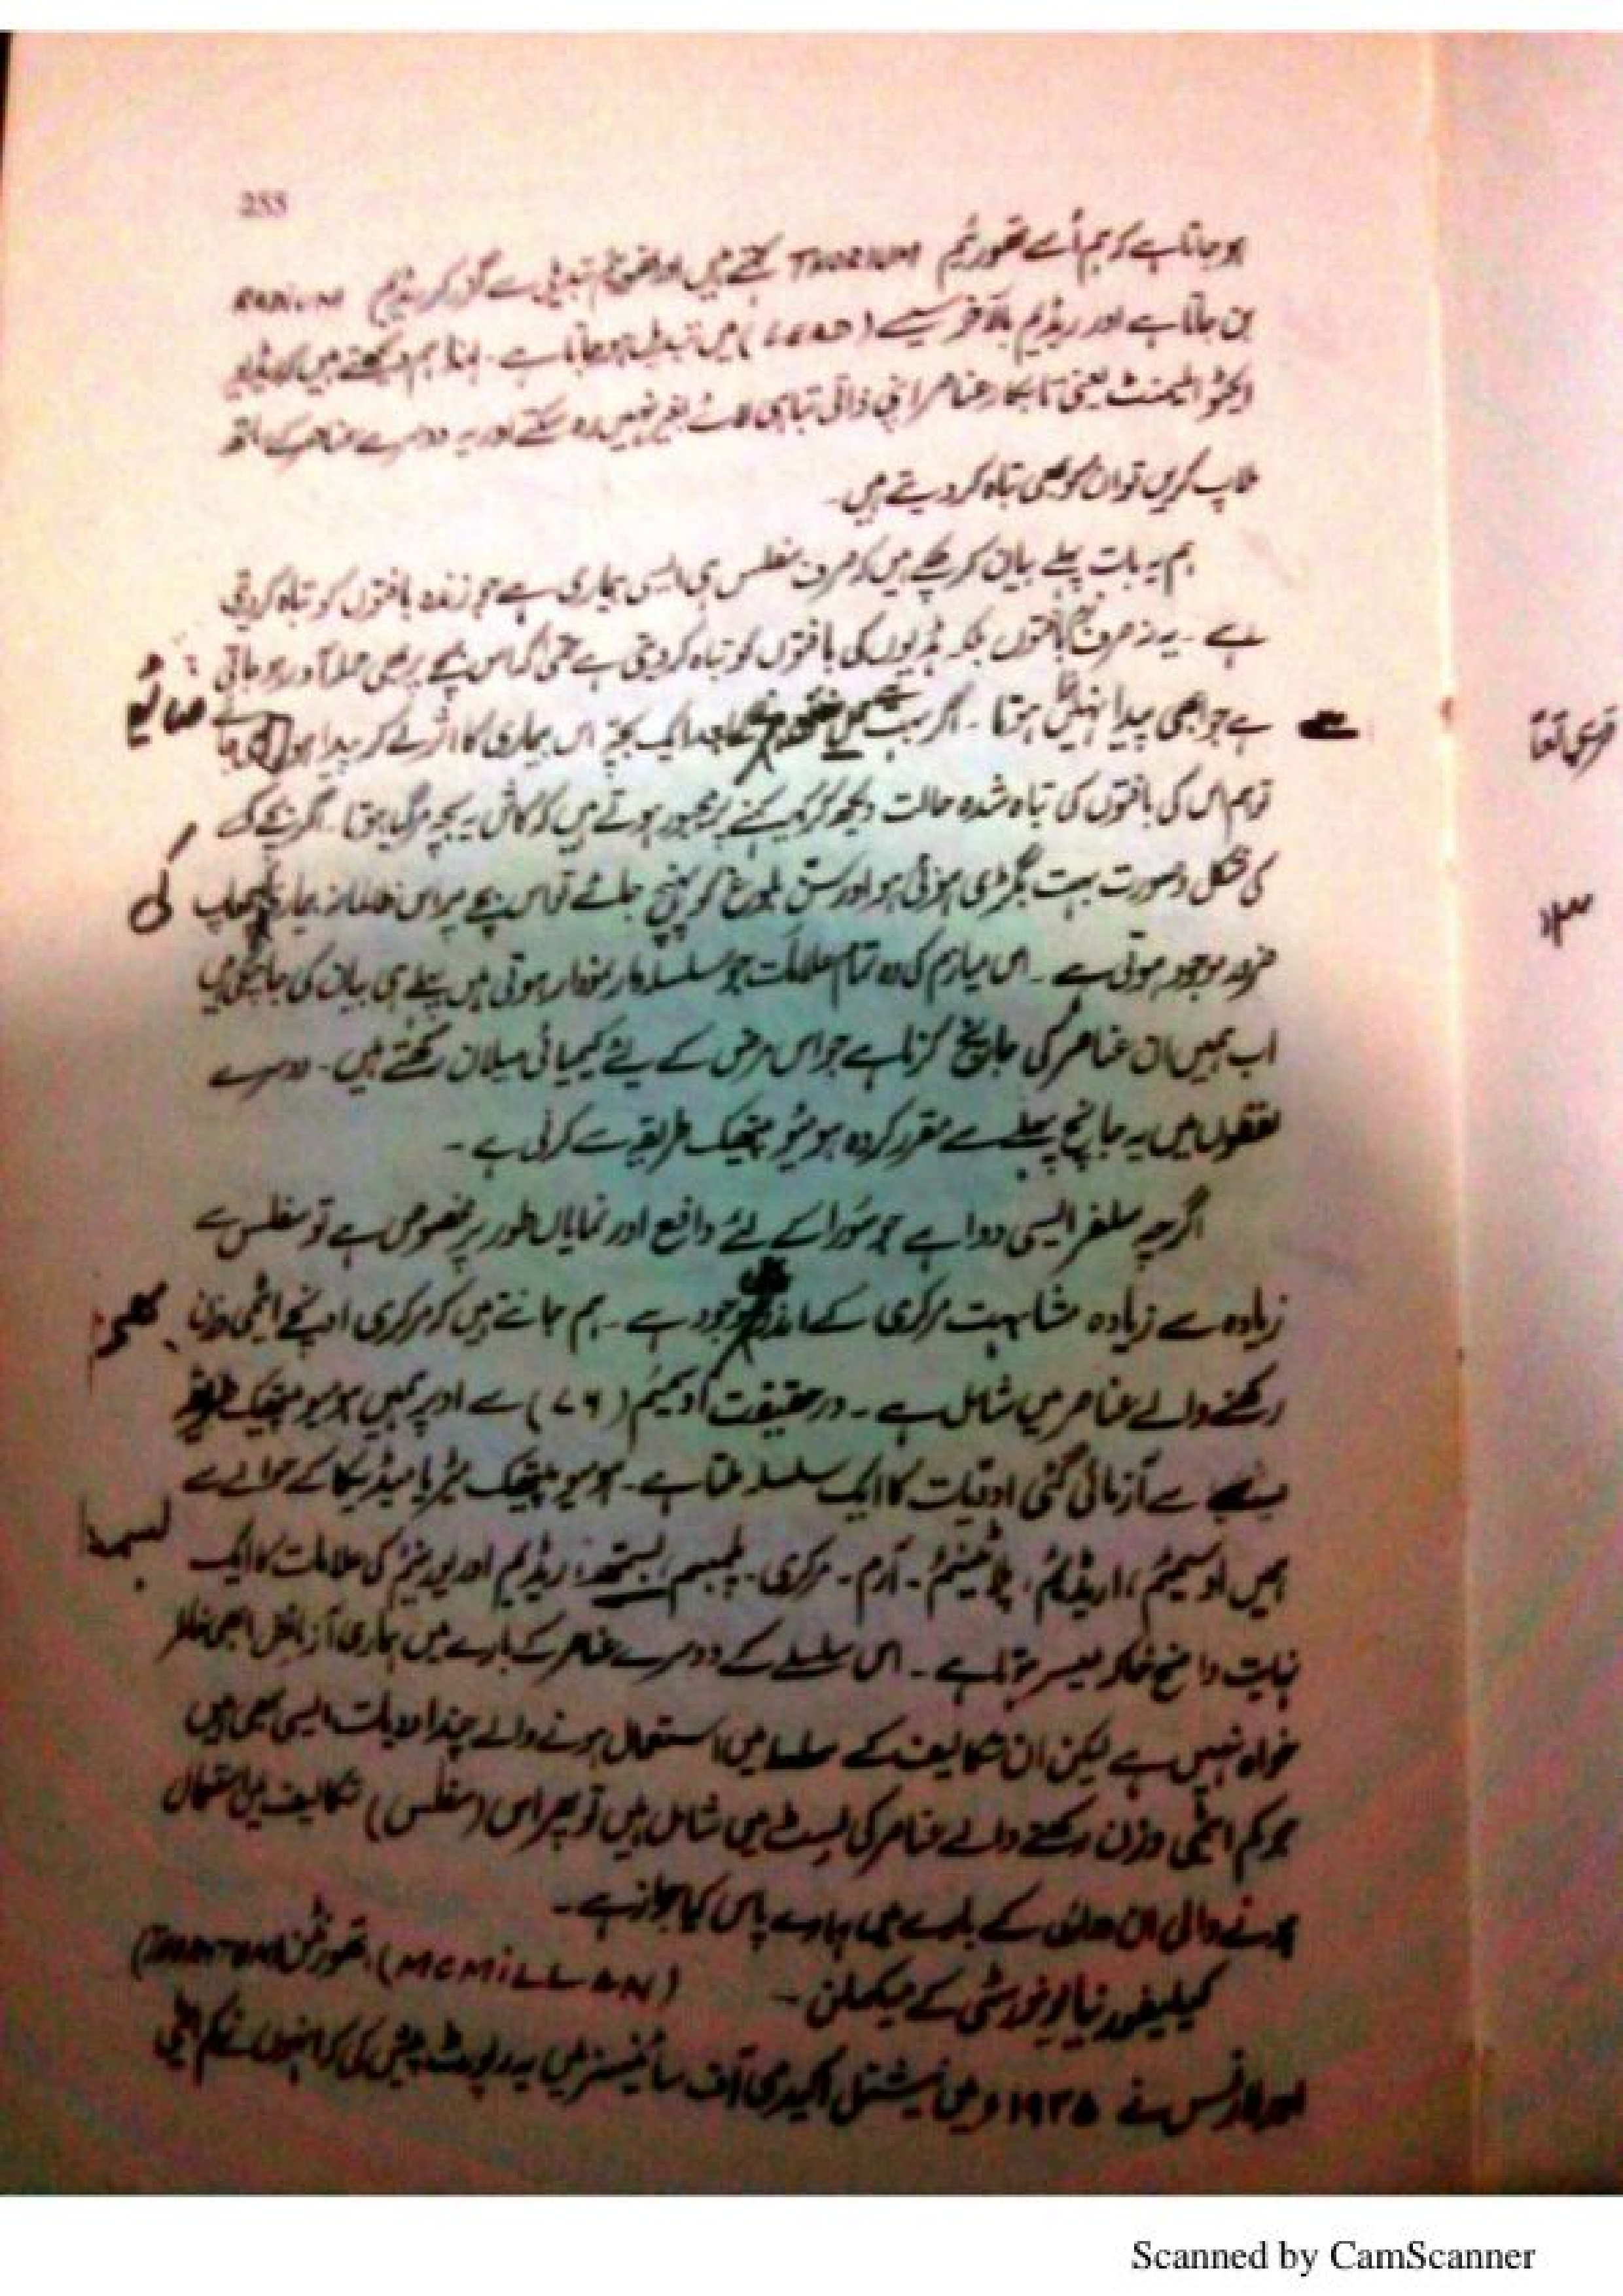 255
ہو جاتا ہے کہ ہم اُسے تھوریم THORIUM کہتے ہیں اور تبدیلی سے گزر کر ریڈیم RADIUM
بن جاتا ہے اور ریڈیم بالآخر سیسے (LEAD) میں تبدیل ہو جاتا ہے۔ لہٰذا ہم دیکھتے ہیں کہ ریڈیو
ایکٹو ایلیمنٹ یعنی تابکار عناصر اپنی ذاتی تباہی لائے بغیر نہیں رہ سکتے اور یہ دوسرے عناصر کے ساتھ
ملاپ کریں تو ان کو بھی تباہ کر دیتے ہیں۔
ہم یہ بات پہلے بیان کر چکے ہیں کہ صرف سفلس ہی ایسی بیماری ہے جو زندہ بافتوں کو تباہ کرتی
ہے۔ یہ نہ صرف بافتوں بلکہ ہڈیوں کی بافتوں کو تباہ کر دیتی ہے حتیٰ کہ اس بچے پر بھی حملہ آور ہو جاتی
ہے جو ابھی پیدا نہیں ہوتا۔ اگر بعد ایک بچہ اس بیماری کا اثر لے کر پیدا ہو
ضائع
تو ہم اس کی بافتوں کی تباہ شدہ حالت دیکھ کر یہ کہنے پر مجبور ہوتے ہیں کہ کاش یہ بچہ مر گیا ہوتا۔ اگر بچے کی
کی شکل و صورت بہت بگڑی ہوئی ہو اور سن بلوغ کو پہنچ جائے تو اس بچے پر اس ظالمانہ بیماری چھاپ
کی
ضرور موجود ہوتی ہے۔ اس میازم کی وہ تمام علامات جو سلسلہ وار نمودار ہوتی ہیں پہلے ہی بیان کی جا چکی ہیں
اب ہمیں ان عناصر کی جانچ کرنا ہے جو اس مرض کے لئے کیمیائی میلان رکھتے ہیں۔ دوسرے
لفظوں میں یہ جانچ پہلے سے مقرر کردہ ہومیوپیتھک طریقے سے کرنی ہے۔
اگرچہ سلفر ایسی دوا ہے جو سورا کے لئے واضح اور نمایاں طور پر مخصوص ہے تو سفلس سے
زیادہ سے زیادہ مشابہت مرکری کے اندر موجود ہے۔ ہم جانتے ہیں کہ مرکری اونچے ایٹمی وزن
رکھنے والے عناصر میں شامل ہے۔ درحقیقت اوسمیئم (۷۶) سے اوپر ہمیں ہومیوپیتھک طریقے
سے آزمائی گئی ادویات کا ایک سلسلہ ملتا ہے۔ ہومیوپیتھک میٹریا میڈیکا کے حوالے سے
ہمیں اوسمیئم، اریڈیم، پلاٹینم۔ آرم۔ مرکری۔ پلمبم، بسمتھ، ریڈیم اور یورینیم کی علامات کا ایک
نہایت واضح خاکہ میسر ہوتا ہے۔ اس سلسلے کے دوسرے عناصر کے بارے میں ہماری آزمائش ابھی خاطر
خواہ نہیں ہے لیکن ان تکالیف کے سلسلہ میں استعمال ہونے والے چند ادویات ایسی بھی ہیں
جو کم ایٹمی وزن رکھنے والے عناصر کی لسٹ میں شامل ہیں تو پھر اس (سفلس) تکالیف میں استعمال
ہونے والی ان دوائی کے بارے میں ہمارے پاس کیا جواز ہے۔
کیلیفورنیا یونیورسٹی کے میکملن۔ (MCMILLAN)، تھورنٹن
اور لارنس نے ۱۹۳۵ء میں نیشنل اکیڈمی آف سائنسز میں یہ رپورٹ پیش کی کہ انہوں نے کم ایٹمی
Scanned by CamScanner